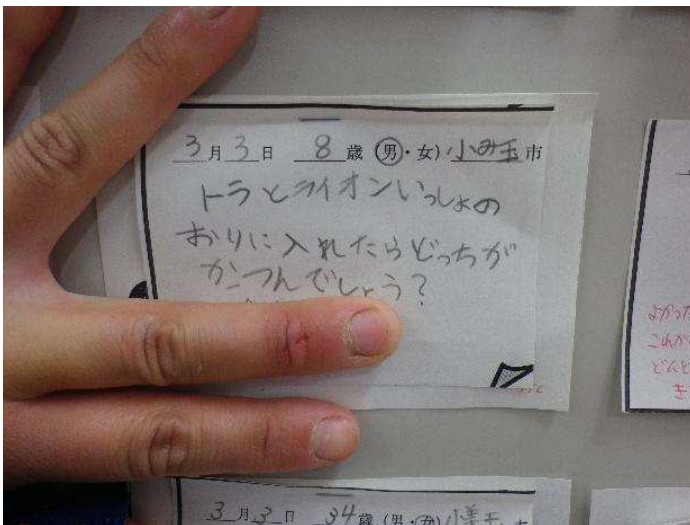 3月3日 8歳 (男・女) 小み玉市
トラとライオンいっしょの
おりに入れたらどっちが
かつんでしょう?
よかった
これから
どんど
き
3月3日 34歳 (男・女) 小美玉市